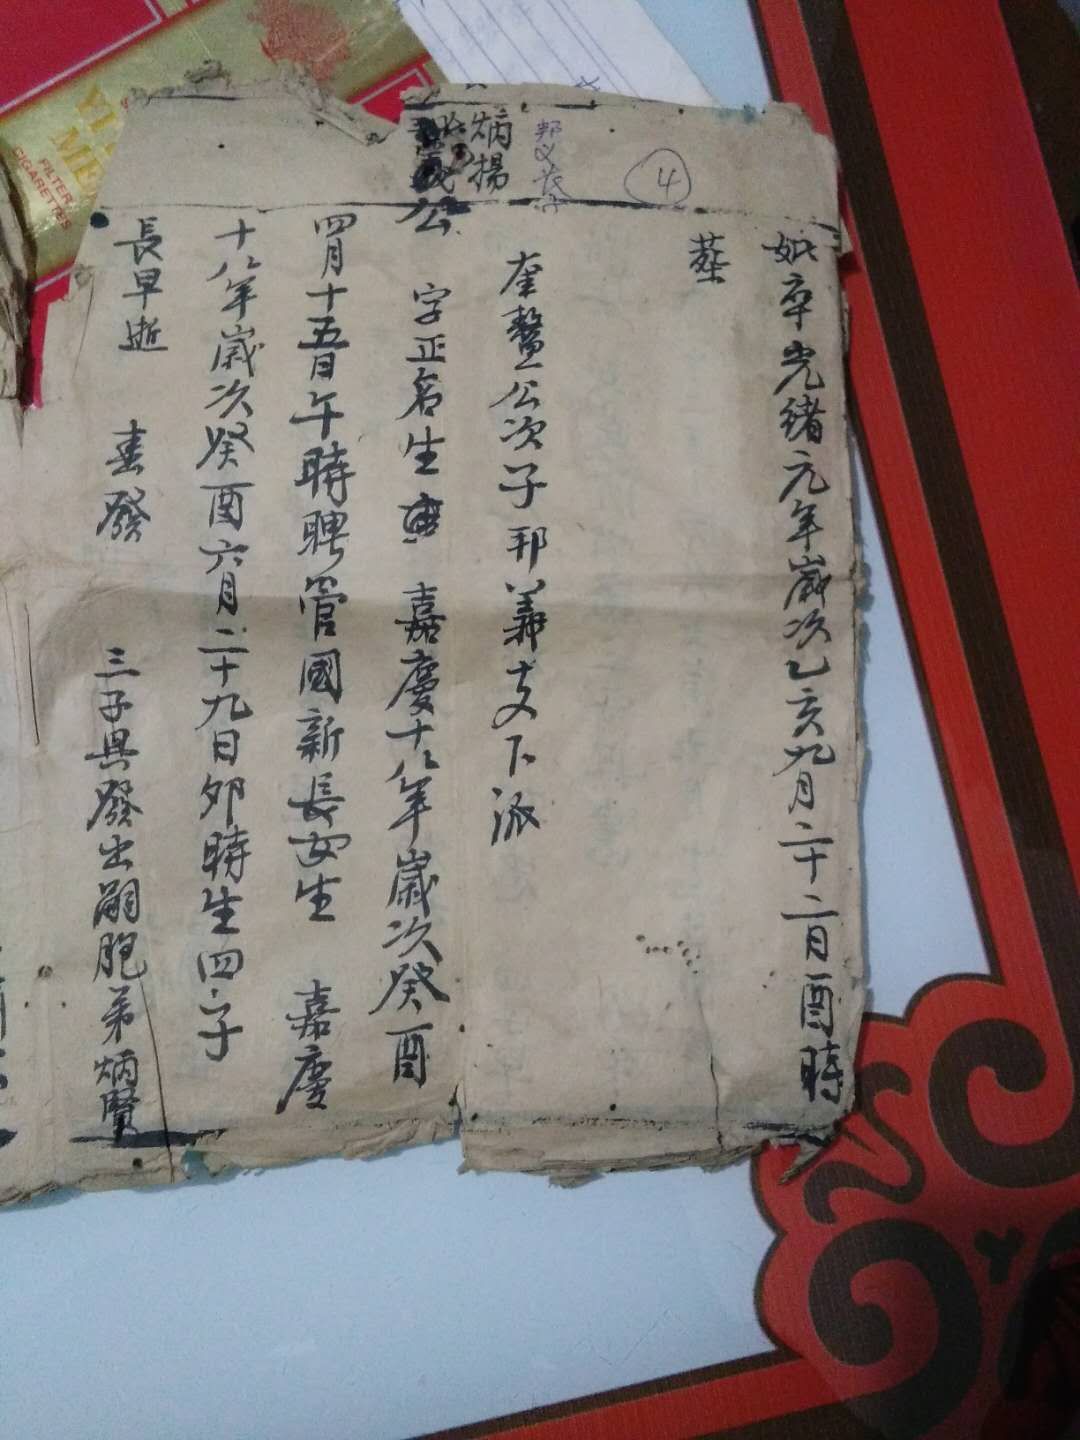 妣卒光緒元年歲次乙亥九月二十二日酉時
葬
④
邦义
奎鰲公次子邦義支下派
炳揚
公 字正名生 嘉慶十八年歲次癸酉
四月十五日午時聘管國新長女生 嘉慶
十八年歲次癸酉六月二十九日卯時生四子
長早逝 春發 三子興發出嗣胞弟炳賢
FILTER
CIGARETTES